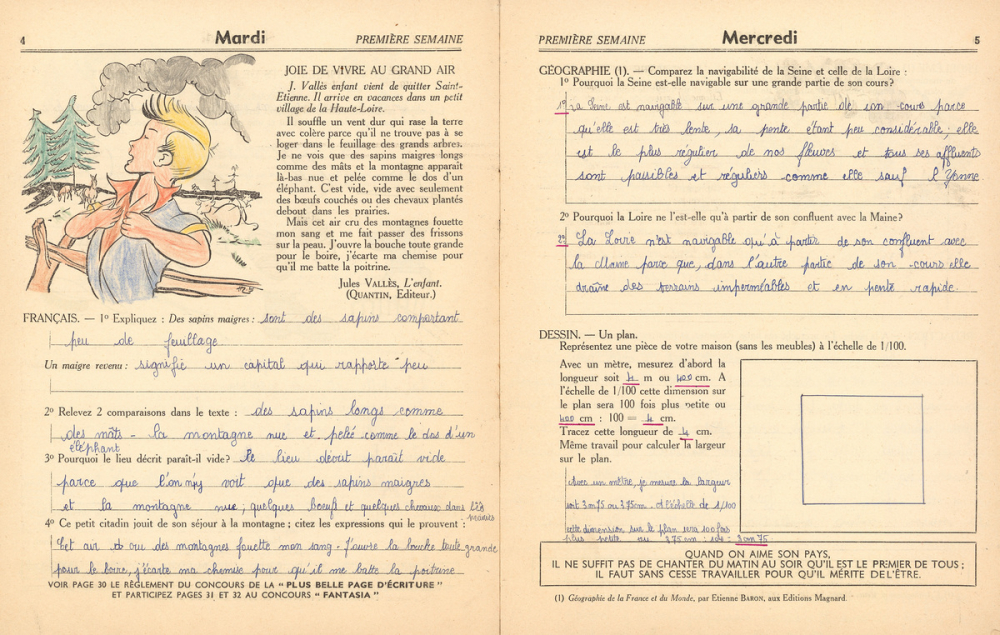 4
Mardi
PREMIÈRE SEMAINE
JOIE DE VIVRE AU GRAND AIR
J. Vallès enfant vient de quitter Saint-
Etienne. Il arrive en vacances dans un petit
village de la Haute-Loire.
Il souffle un vent dur qui rase la terre
avec colère parce qu'il ne trouve pas à se
loger dans le feuillage des grands arbres.
Je ne vois que des sapins maigres longs
comme des mâts et la montagne apparaît
là-bas nue et pelée comme le dos d'un
éléphant. C'est vide, vide avec seulement
des bœufs couchés ou des chevaux plantés
debout dans les prairies.
Mais cet air cru des montagnes fouette
mon sang et me fait passer des frissons
sur la peau. J'ouvre la bouche toute grande
pour le boire, j'écarte ma chemise pour
qu'il me batte la poitrine.
Jules VALLÈS, L'enfant.
(QUANTIN, Editeur.)
FRANÇAIS. — 1º Expliquez : Des sapins maigres : sont des sapins comportant
peu de feuillage
Un maigre revenu : signifie un capital qui rapporte peu
2º Relevez 2 comparaisons dans le texte : des sapins longs comme
des mâts - la montagne nue et pelée comme le dos d'un
éléphant
3º Pourquoi le lieu décrit paraît-il vide? le lieu décrit paraît vide
parce que l'on n'y voit que des sapins maigres
et la montagne nue ; quelques bœufs et quelques chevaux dans les
prairies
4º Ce petit citadin jouit de son séjour à la montagne ; citez les expressions qui le prouvent :
Cet air cru des montagnes fouette mon sang - J'ouvre la bouche toute grande
pour le boire, j'écarte ma chemise pour qu'il me batte la poitrine
VOIR PAGE 30 LE RÈGLEMENT DU CONCOURS DE LA “ PLUS BELLE PAGE D'ÉCRITURE ”
ET PARTICIPEZ PAGES 31 ET 32 AU CONCOURS “ FANTASIA ”
PREMIÈRE SEMAINE
Mercredi
5
GÉOGRAPHIE (1). — Comparez la navigabilité de la Seine et celle de la Loire :
1º Pourquoi la Seine est-elle navigable sur une grande partie de son cours?
1º La Seine est navigable sur une grande partie de son cours parce
qu'elle est très lente, sa pente étant peu considérable ; elle
est le plus régulier de nos fleuves et tous ses affluents
sont paisibles et réguliers comme elle sauf l'Yonne
2º Pourquoi la Loire ne l'est-elle qu'à partir de son confluent avec la Maine?
2º La Loire n'est navigable qu'à partir de son confluent avec
la Maine parce que, dans l'autre partie de son cours elle
draîne des terrains imperméables et en pente rapide.
DESSIN. — Un plan.
Représentez une pièce de votre maison (sans les meubles) à l'échelle de 1/100.
Avec un mètre, mesurez d'abord la
longueur soit 4 m ou 400 cm. A
l'échelle de 1/100 cette dimension sur
le plan sera 100 fois plus petite ou
400 cm : 100 = 4 cm.
Tracez cette longueur de 4 cm.
Même travail pour calculer la largeur
sur le plan.
Avec un mètre, je mesure la largeur
soit 3m75 ou 375cm. A l'échelle de 1/100
cette dimension sur le plan sera 100 fois
plus petite ou 375cm : 100 = 3cm75
QUAND ON AIME SON PAYS,
IL NE SUFFIT PAS DE CHANTER DU MATIN AU SOIR QU'IL EST LE PREMIER DE TOUS ;
IL FAUT SANS CESSE TRAVAILLER POUR QU'IL MÉRITE DE L'ÊTRE.
(1) Géographie de la France et du Monde, par Etienne BARON, aux Editions Magnard.